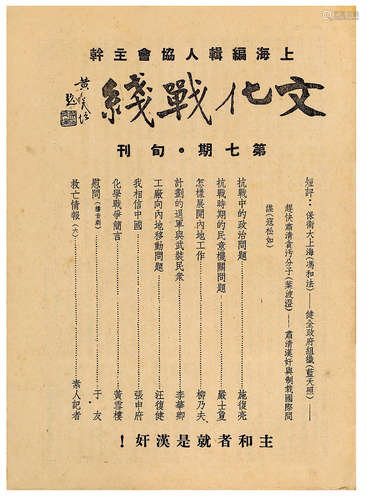 上海編輯人協會主幹
文化戰綫
黃炎培題
第七期・旬刊
短評：保衛大上海（馮和法）——健全政府組織（藍天照）——
趕快肅清貪汚分子（葉波澄）——肅清漢奸與制裁國際間
諜（寇松如）
抗戰中的政治問題……施復亮
抗戰時期的民意機關問題……嚴士重
怎樣展開內地工作……柳乃夫
計劃的退軍與武裝民衆……李華卿
工廠向內地移動問題……汪復健
我相信中國……張申府
化學戰爭簡言……黃雪樓
慰問（播音劇）……于友
救亡情報（六）……素人記者
主和者就是漢奸！